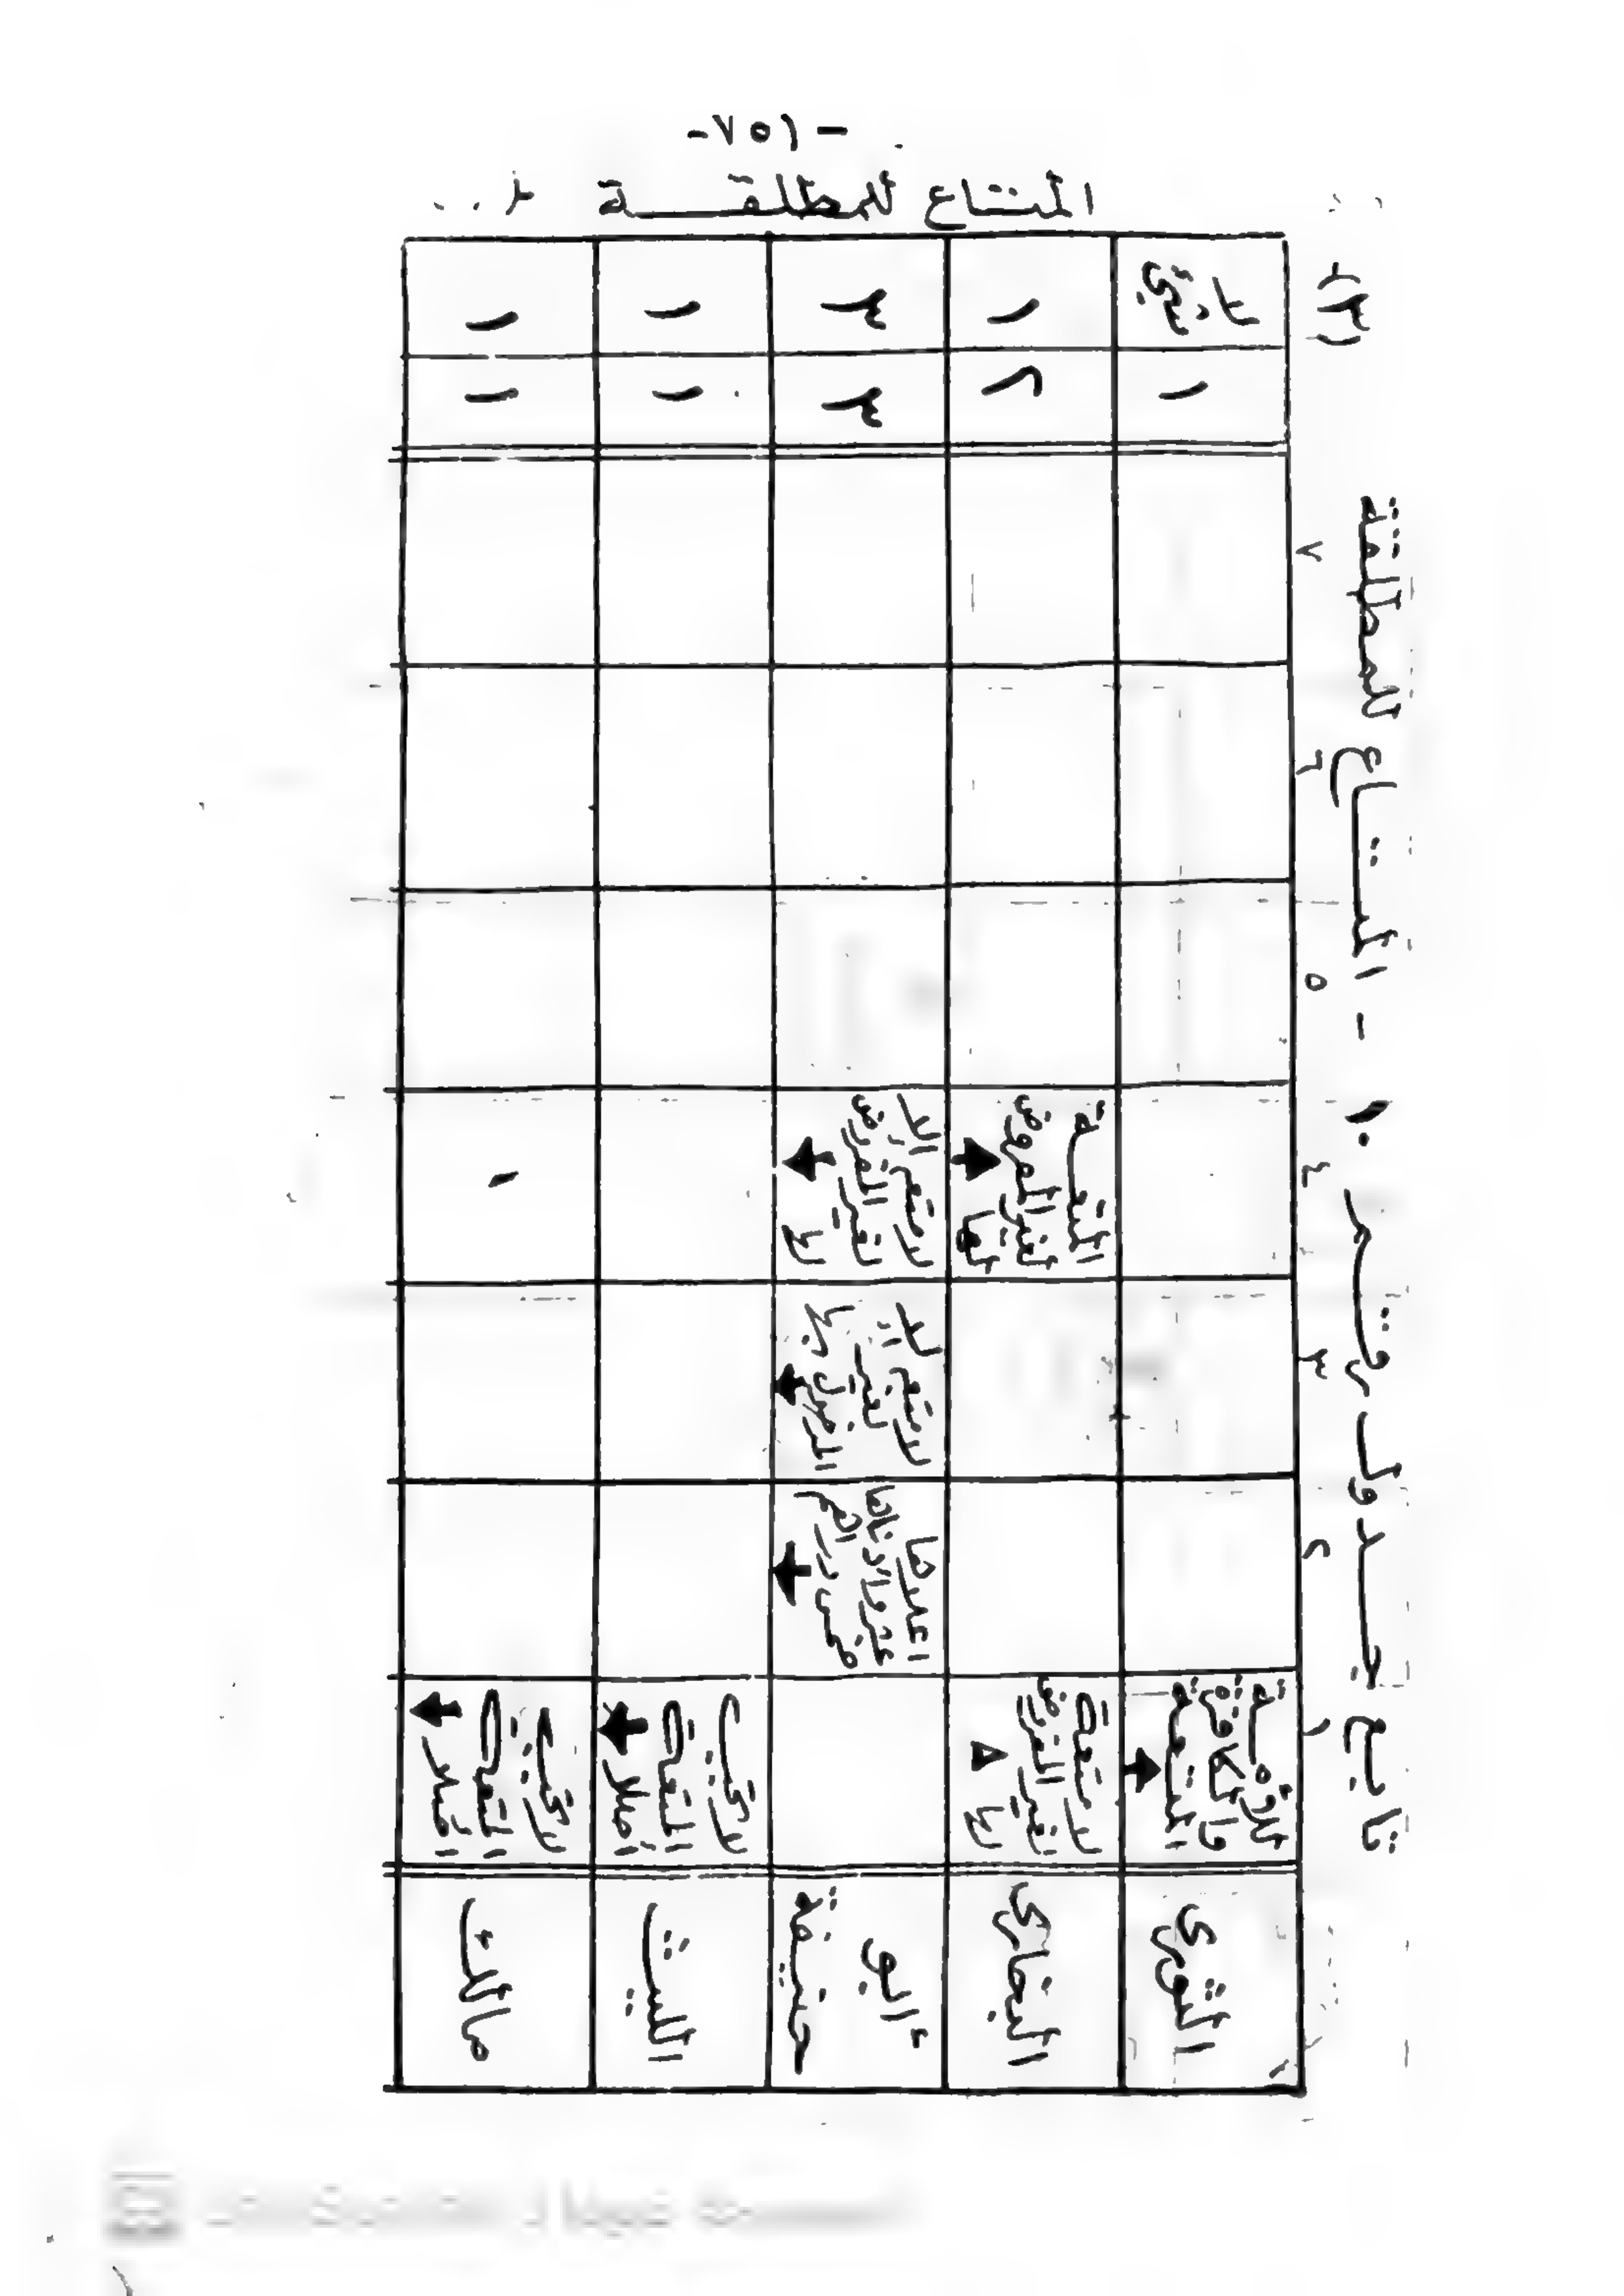 -١٥٧-
المتاع للمطلقة
(٣)
تابع جدول رقم ١٠ - المتاع للمطلقة
١ ٢ ٣ ٤ ٥ ٦ ٧
الثوري
للأمة
والكافرة
المتعة
١
لا
شيء
البخاري
لا متعة
لغير الفرض
لها
المتعة
لغير المفروض
لها
٢
١
أبو
حنيفة
لا متعة إلا
لغير
المدخول بها
لا متعة إلا
لغير الفرض
لها
٣
٣
الليث
لا تجب
المتعة
أصلا
١
١
مالك
لا تجب
المتعة
أصلا
١
١